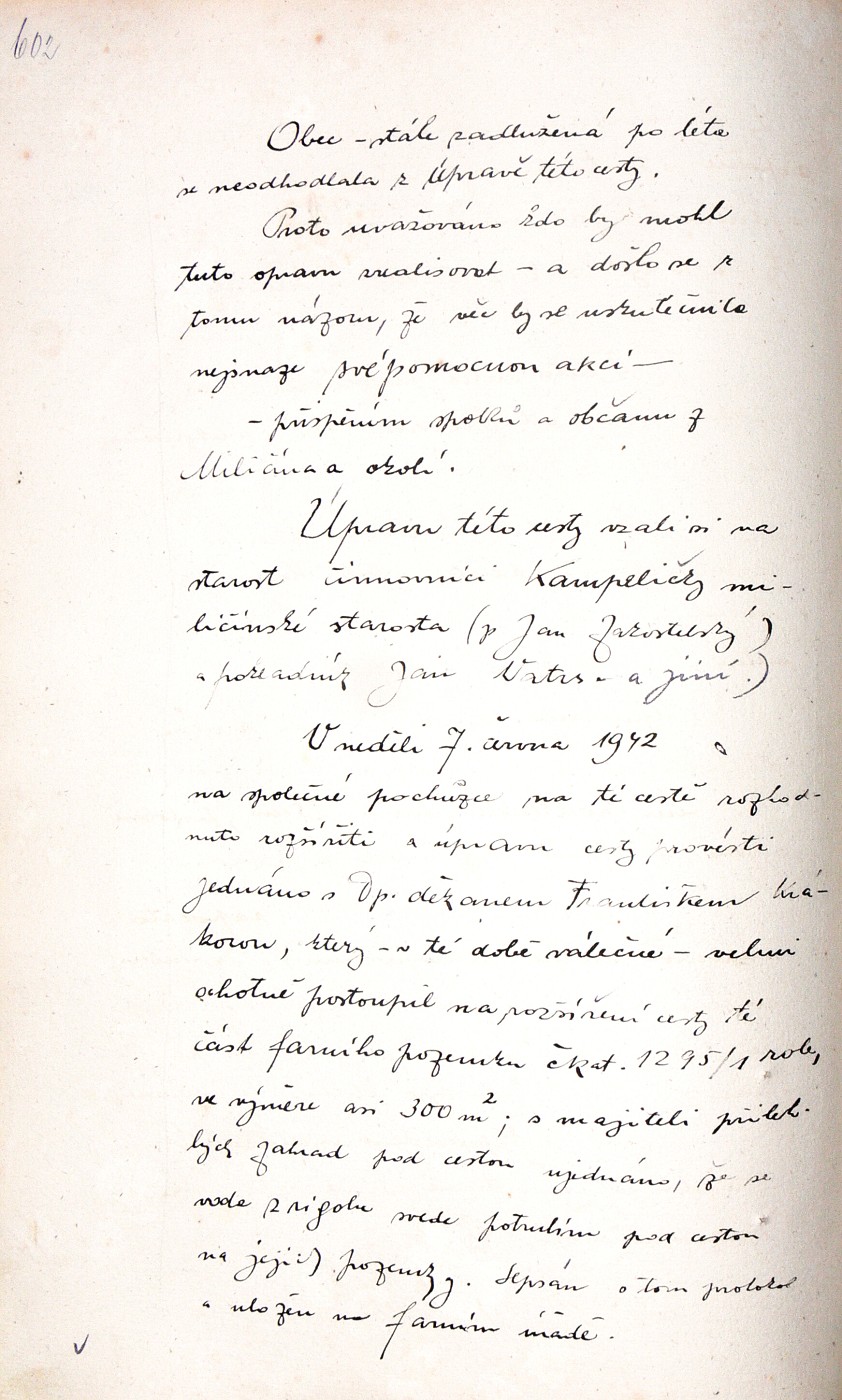 602
Obec – stále zadlužená po léta
se neodhodlala k úpravě této cesty.
Proto uvažováno kdo by mohl
tuto opravu zrealisovat – a došlo se k
tomu názoru, že věc by se uskutečnila
nejsnaze svépomocnou akcí –
– přispěním spolků a občanů z
Miličína a okolí.
Úpravu této cesty vzali si na
starost činnovníci Kampeličky mi-
ličínské starosta (p Jan Zakostelský)
a pokladník Jan a jiní.)
V neděli 7. června 1942
na společné pochůzce na té cestě rozhod-
nuto rozšířiti a úpravu cesty provésti
jednáno s Dp. děkanem Františkem Krá-
korou, který – v té době válečné – velmi
ochotně postoupil na rozšíření cesty té
část farního pozemku čkat. 1295/1 role,
ve výměře asi 300 m²; s majiteli přileh-
lých zahrad pod cestou ujednáno, že se
voda z rigolu svede potrubím pod cestou
na jejich pozemky. Sepsán o tom protokol
a uložen na farním úřadě.